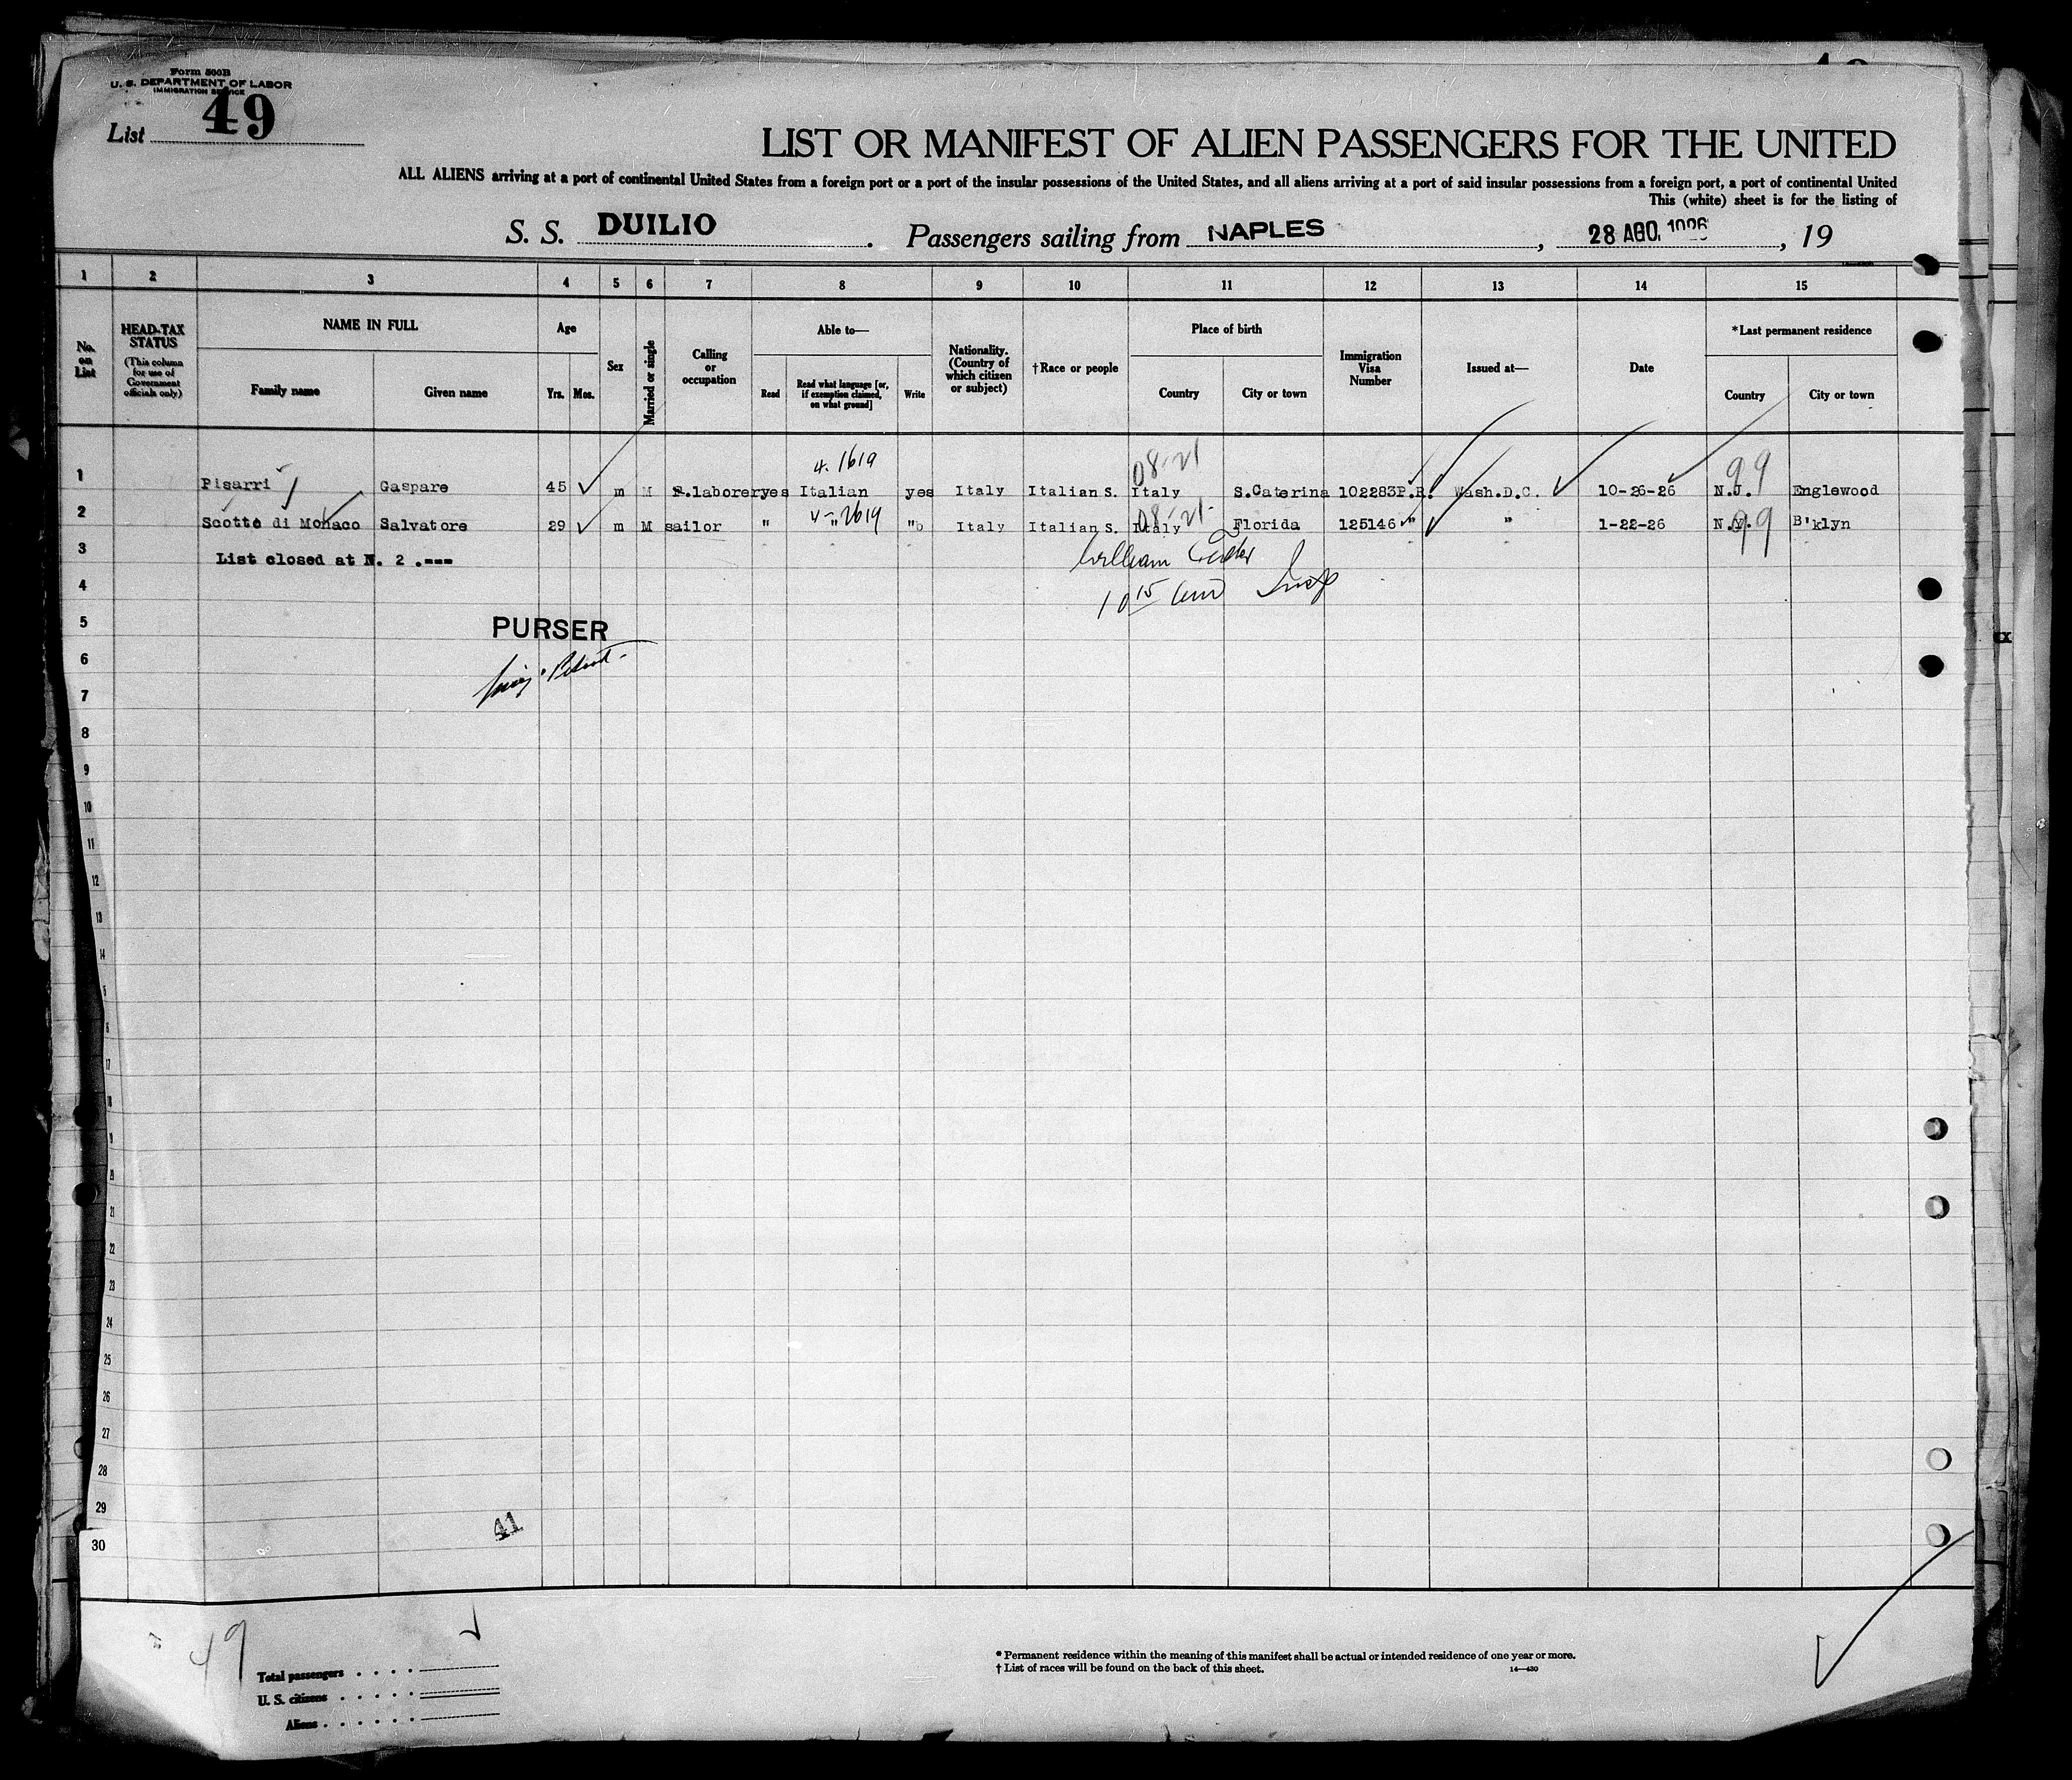 Form 500B
U. S. DEPARTMENT OF LABOR
IMMIGRATION SERVICE
List 49
LIST OR MANIFEST OF ALIEN PASSENGERS FOR THE UNITED
ALL ALIENS arriving at a port of continental United States from a foreign port or a port of the insular possessions of the United States, and all aliens arriving at a port of said insular possessions from a foreign port, a port of continental United
This (white) sheet is for the listing of
S. S. DUILIO. Passengers sailing from NAPLES, 28 AGO. 1926, 19
1 2 3 4 5 6 7 8 9 10 11 12 13 14 15
No. on List
HEAD-TAX STATUS
(This column for use of Government officials only)
NAME IN FULL
Family name
Given name
Age
Yrs. Mos.
Sex
Married or single
Calling or occupation
Able to—
Read
Read what language [or, if exemption claimed, on what ground]
Write
Nationality. (Country of which citizen or subject)
†Race or people
Place of birth
Country
City or town
Immigration Visa Number
Issued at—
Date
*Last permanent residence
Country
City or town
4-1619 08-21 99
1 Pisarri Gaspare 45 m M R.laborer yes Italian yes Italy Italian S. Italy S.Caterina 102283P.R. Wash.D.C. 10-26-26 N.J. Englewood
4-2619 08-21 99
2 Scotto di Monaco Salvatore 29 m M sailor " " " Italy Italian S. Italy Florida 125146 " " 1-22-26 N.Y. B'klyn
3 List closed at N. 2 .---
William
4
10 15 am Insp
5 PURSER
6
7
8
9
10
11
12
13
14
5
6
17
18
9
20
21
22
23
24
25
26
27
28
29 41
30
49
Total passengers
U. S. citizens
Aliens
* Permanent residence within the meaning of this manifest shall be actual or intended residence of one year or more.
† List of races will be found on the back of this sheet.
14—430